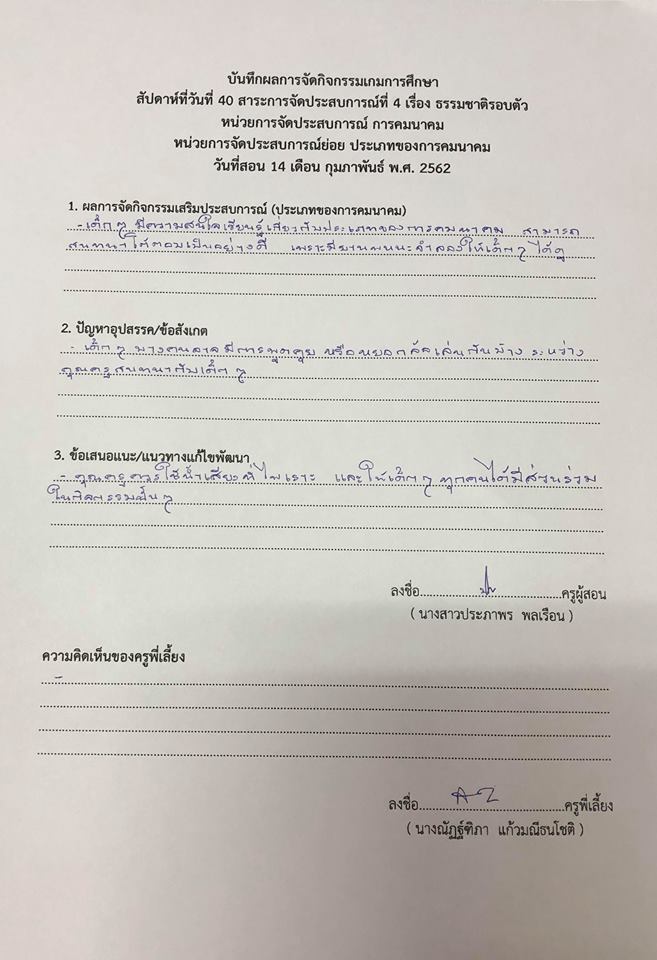 บันทึกผลการจัดกิจกรรมเกมการศึกษา
สัปดาห์ที่วันที่ 40 สาระการจัดประสบการณ์ที่ 4 เรื่อง ธรรมชาติรอบตัว
หน่วยการจัดประสบการณ์ การคมนาคม
หน่วยการจัดประสบการณ์ย่อย ประเภทของการคมนาคม
วันที่สอน 14 เดือน กุมภาพันธ์ พ.ศ. 2562
1. ผลการจัดกิจกรรมเสริมประสบการณ์ (ประเภทของการคมนาคม)
- เด็กๆ มีความสนใจเรียนรู้เกี่ยวกับประเภทของการคมนาคม สามารถ
สนทนาโต้ตอบเป็นอย่างดี เพราะมียานพาหนะจำลองให้เด็กๆ ได้ดู
2. ปัญหาอุปสรรค/ข้อสังเกต
- เด็กๆ บางคนอาจมีการพูดคุย หรือหยอกล้อเล่นกันบ้าง ระหว่าง
คุณครูสนทนากับเด็กๆ
3. ข้อเสนอแนะ/แนวทางแก้ไขพัฒนา
- คุณครูควรใช้น้ำเสียงที่ไพเราะ และให้เด็กๆ ทุกคนได้มีส่วนร่วม
ในกิจกรรมนั้นๆ
ลงชื่อ..............................ครูผู้สอน
( นางสาวประภาพร พลเรือน )
ความคิดเห็นของครูพี่เลี้ยง
ลงชื่อ..............................ครูพี่เลี้ยง
( นางณัฏฐ์ฑิภา แก้วมณีธนโชติ )